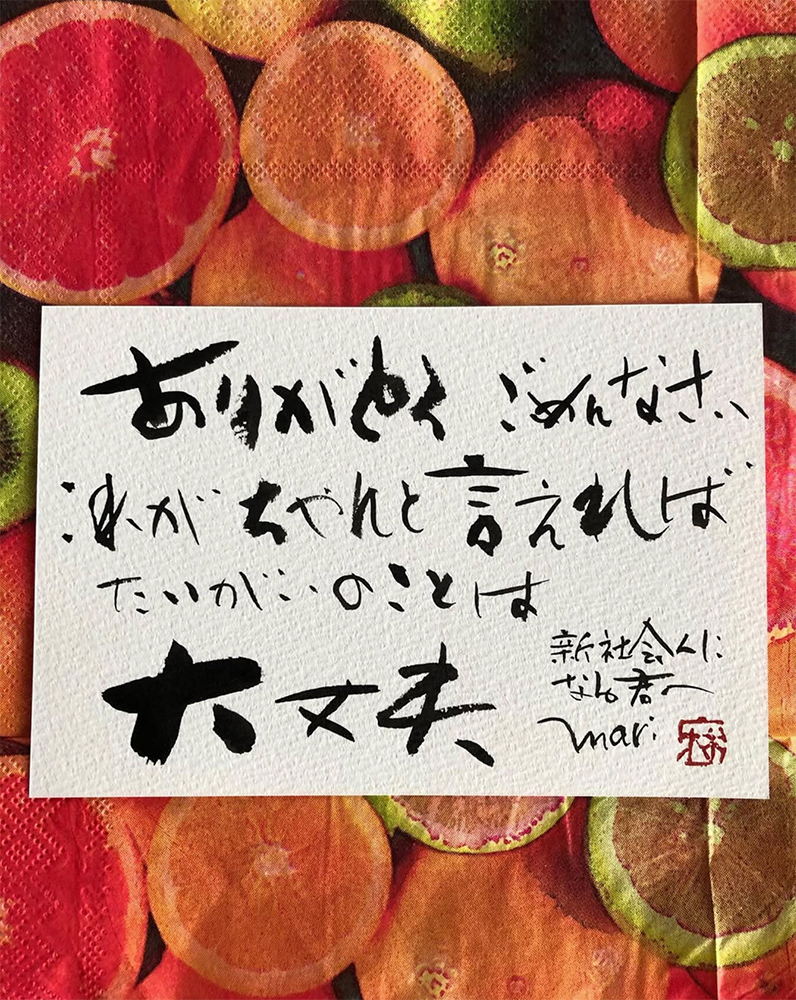 ありがとう ごめんなさい
これがちゃんと言えれば
たいがいのことは
大丈夫
新社会人に
なる君へ
mari